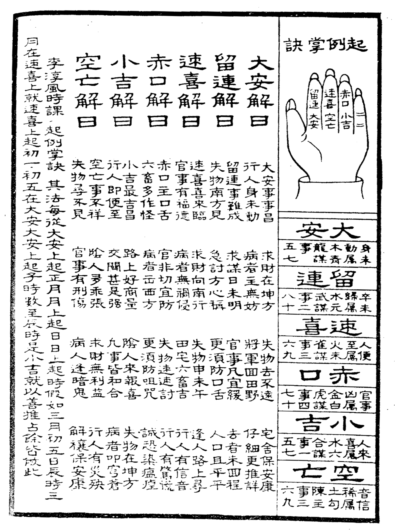 起例掌訣
赤口 小吉
速喜 空亡
留連 大安
大安
身未動屬木青龍謀事一五七
留連
卒未歸屬水元武謀事二八十
速喜
人便至屬火朱雀謀事三六九
赤口
官事凶屬金白虎謀事四七十
小吉
人來喜屬木六合謀事一五七
空亡
音信稀屬土勾陳謀事三六九
大安解曰
大安事事昌 求財在坤方 失物去不遠 宅舍保安康
行人身未動 病者主無妨 將軍回田野 仔細更推詳
留連解曰
留連事難成 求謀日未明 官事凡宜緩 去者未回程
失物南方見 急討方心稱 更須防口舌 人口且平平
速喜解曰
速喜喜來臨 求財向南行 失物申未午 逢人路上尋
官事有福德 病者無禍侵 田宅六畜吉 行人有信音
赤口解曰
赤口主口舌 官非切宜防 失物速速討 行人有驚慌
六畜多作怪 病者出西方 更須防咀咒 誠恐染瘟疫
小吉解曰
小吉最吉昌 路上好商量 陰人來報喜 失物在坤方
行人即便至 交關甚是強 凡事皆和合 病者叩穹蒼
空亡解曰
空亡事不祥 陰人多乖張 求財無利益 行人有災殃
失物尋不見 官事有刑傷 病人逢暗鬼 解禳保安康
李淳風時課起例掌訣其法每從大安上起正月月上起日日上起時假如三月初五日辰時三
月在速喜上就速喜上起初一初五在大安大安上起子時數至辰時是小吉就以善推占餘皆倣此